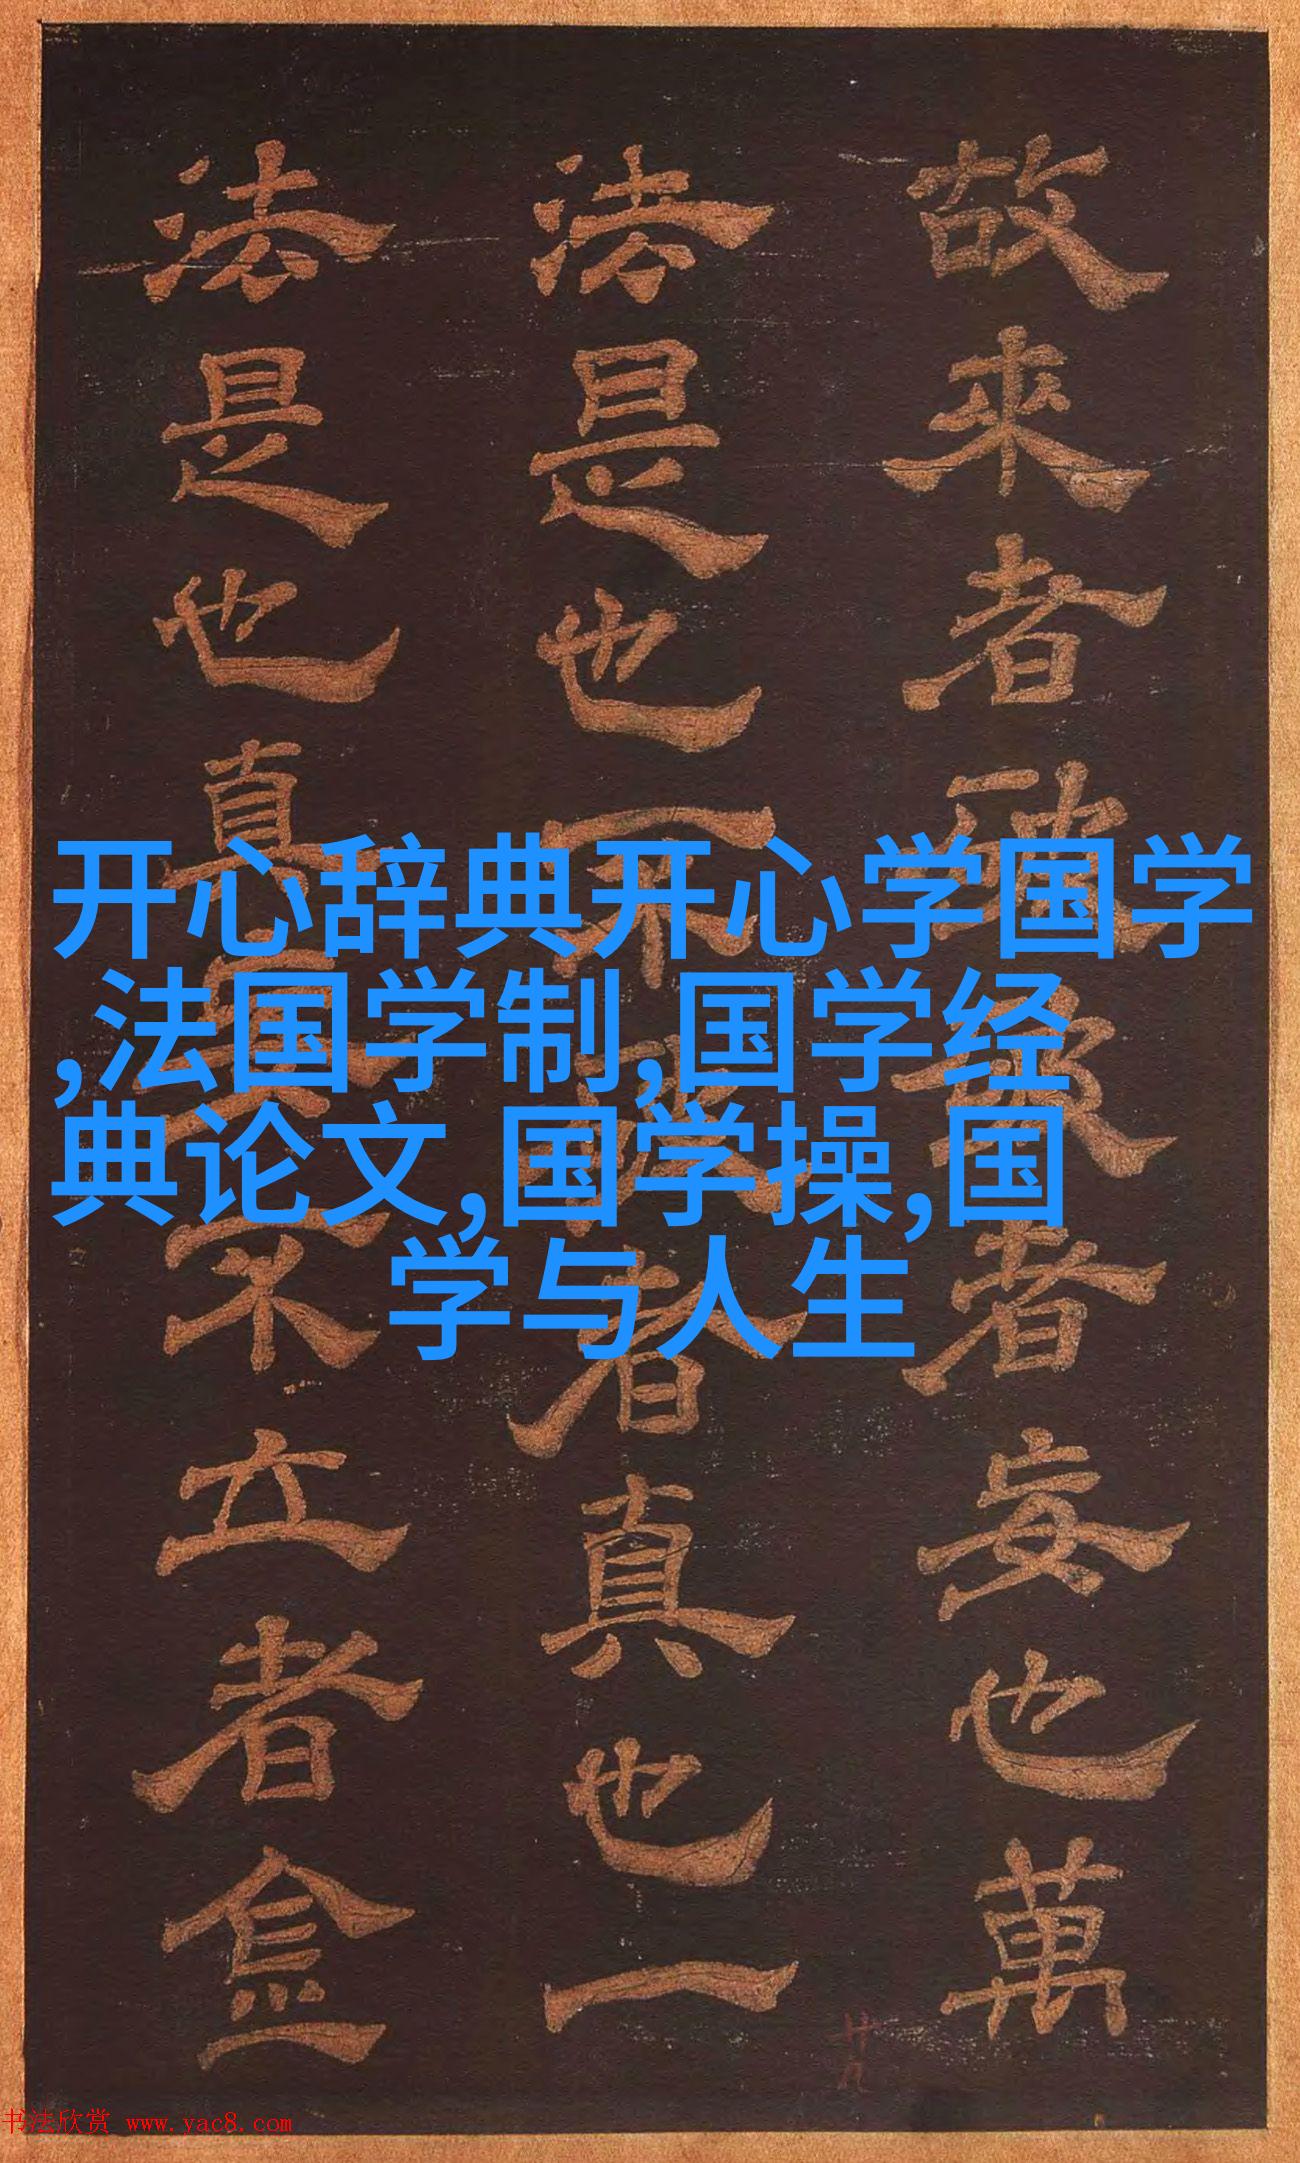 故來者者妄也萬
法是也不者真也一
法是也真不立者
开心辞典开心学国学
,法国学制,国学经
典论文,国学操,国
学与人生
书法欣赏 www.yac8.com